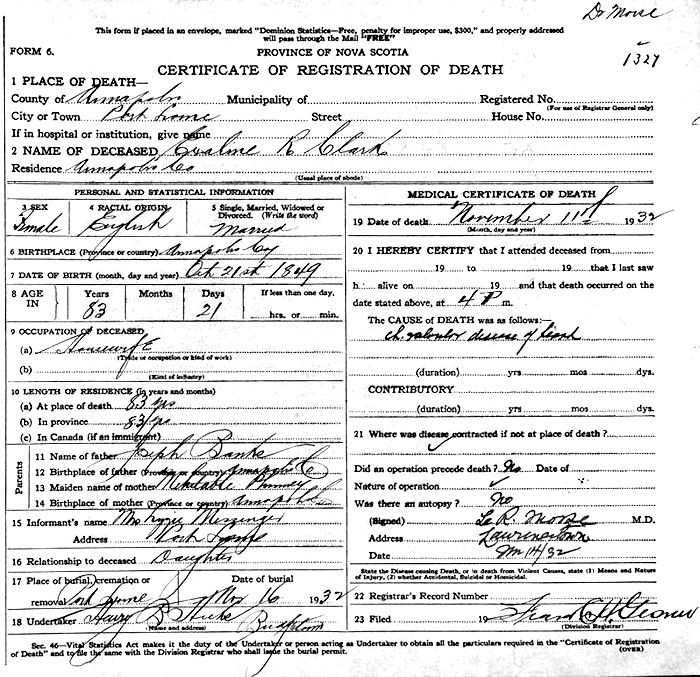 Dr Morse
This form if placed in an envelope, marked "Dominion Statistics—Free, penalty for improper use, $300," and properly addressed
will pass through the Mail "FREE"
FORM 6.
PROVINCE OF NOVA SCOTIA
1327
CERTIFICATE OF REGISTRATION OF DEATH
1 PLACE OF DEATH—
County of Annapolis Municipality of Registered No.
(For use of Registrar General only)
City or Town Port Lorne Street House No.
If in hospital or institution, give name
2 NAME OF DECEASED Evaline R Clark
Residence Annapolis Co
(Usual place of abode)
PERSONAL AND STATISTICAL INFORMATION
3 SEX Female
4 RACIAL ORIGIN English
5 Single, Married, Widowed or Divorced. (Write the word) Married
6 BIRTHPLACE (Province or country) Annapolis Co
7 DATE OF BIRTH (month, day and year) Oct 21st 1849
8 AGE IN Years 83 Months Days 21 If less than one day, hrs. or min.
9 OCCUPATION OF DECEASED
(a) Housewife
(Trade or occupation or kind of work)
(b)
(Kind of industry)
10 LENGTH OF RESIDENCE (in years and months)
(a) At place of death 83 yrs
(b) In province 83 yrs
(c) In Canada (if an immigrant)
Parents
11 Name of father Banks
12 Birthplace of father (Province or country) Annapolis Co
13 Maiden name of mother
14 Birthplace of mother (Province or country) Annapolis
15 Informant's name Mrs Messinger
Address Port Lorne
16 Relationship to deceased Daughter
17 Place of burial, cremation or Date of burial
removal Port Lorne Nov 16 1932
18 Undertaker Hicks Bridgetown
(Name and address)
MEDICAL CERTIFICATE OF DEATH
19 Date of death November 11th 1932
(Month, day and year)
20 I HEREBY CERTIFY that I attended deceased from
19 to 19 that I last saw
h alive on 19 and that death occurred on the
date stated above, at 4 P m.
The CAUSE OF DEATH was as follows:
Ch. valvular disease of heart
(duration) yrs mos dys.
CONTRIBUTORY
(duration) yrs mos dys.
21 Where was disease contracted if not at place of death?
Did an operation precede death? No Date of
Nature of operation
Was there an autopsy? No
(Signed) L. R. Morse M.D.
Address Lawrencetown
Date 32
State the Disease causing Death, or in death from Violent Causes, state (1) Means and Nature
of Injury, (2) whether Accidental, Suicidal or Homicidal.
22 Registrar's Record Number
23 Filed 19 Frank H
(Division Registrar)
Sec. 46—Vital Statistics Act makes it the duty of the Undertaker or person acting as Undertaker to obtain all the particulars required in the "Certificate of Registration
of Death" and to file the same with the Division Registrar who shall issue the burial permit.
(OVER)